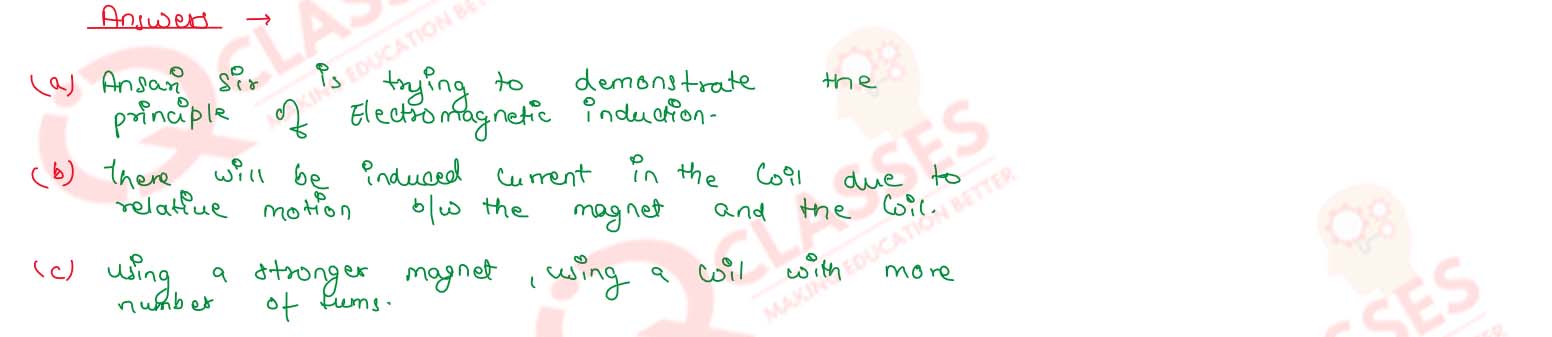 Answers →
(a) Ansari sir is trying to demonstrate the
principle of Electromagnetic induction.
(b) There will be induced current in the coil due to
relative motion b/w the magnet and the coil.
(c) using a stronger magnet, using a coil with more
number of turns.
CLASSES
MAKING EDUCATION BETTER
CLASSES
MAKING EDUCATION BETTER
SSES